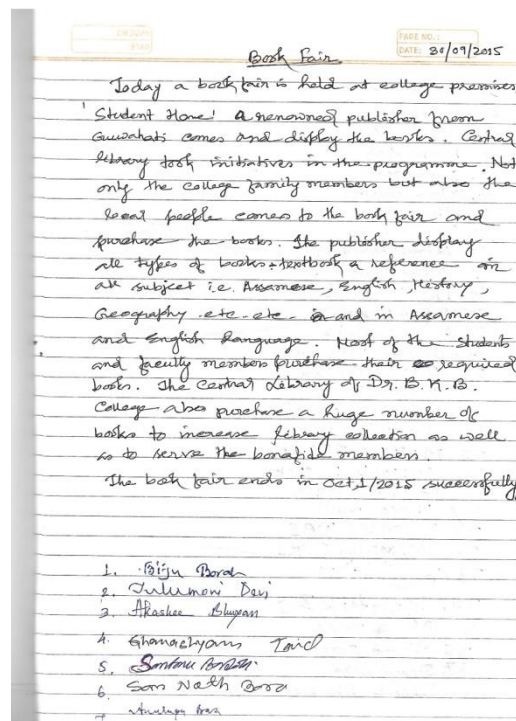 PAGE NO.:
DATE: 30/09/2015
Book Fair
Today a book fair is held at college premises
'Student Home' a renowned publisher from
Guwahati comes and display the books. Central
library took initiatives in the programme. Not
only the college family members but also the
local people comes to the book fair and
purchase the books. The publisher display
all types of books textbook a reference on
all subject i.e. Assamese, English, History,
Geography etc. etc. and in Assamese
and English language. Most of the Students
and faculty members purchase their required
books. The Central Library of Dr. B. K. B.
College also purchase a huge number of
books to increase library collection as well
as to serve the bonafide members.
The book fair ends in Oct, 1/2015 successfully
1. Biju Borah
2. Julumoni Devi
3. Akashee Bhuyan
4. Ghanashyam
5.
6. Som Nath Bora
7